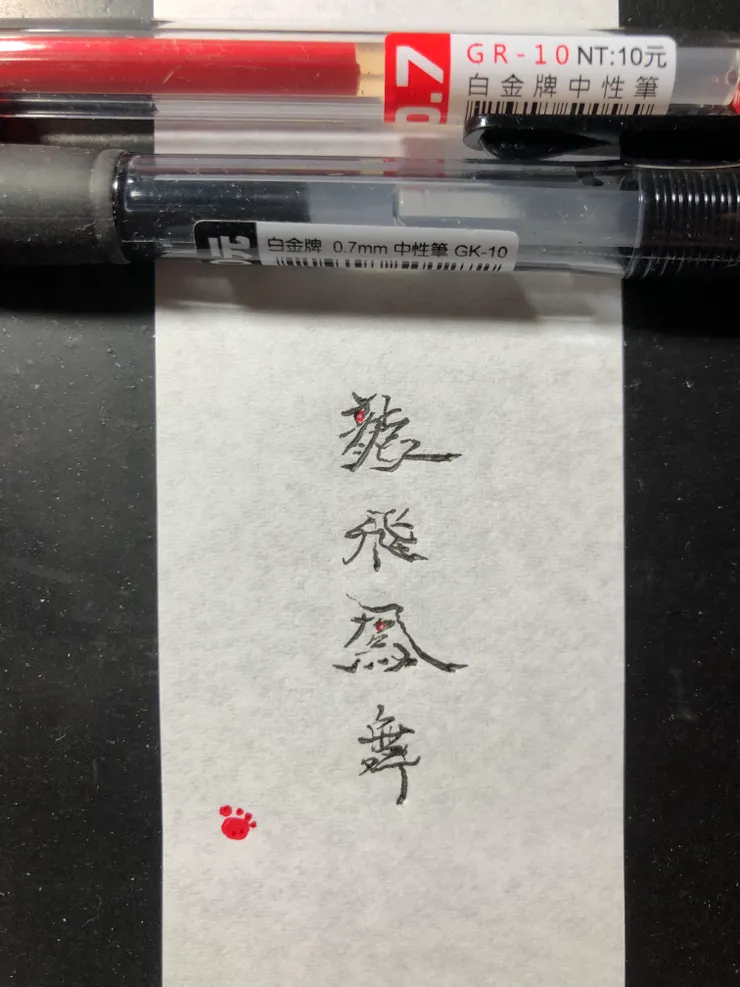 0.7
GR-10 NT:10元
白金牌中性筆
白金牌 0.7mm 中性筆 GK-10
龍飛鳳舞